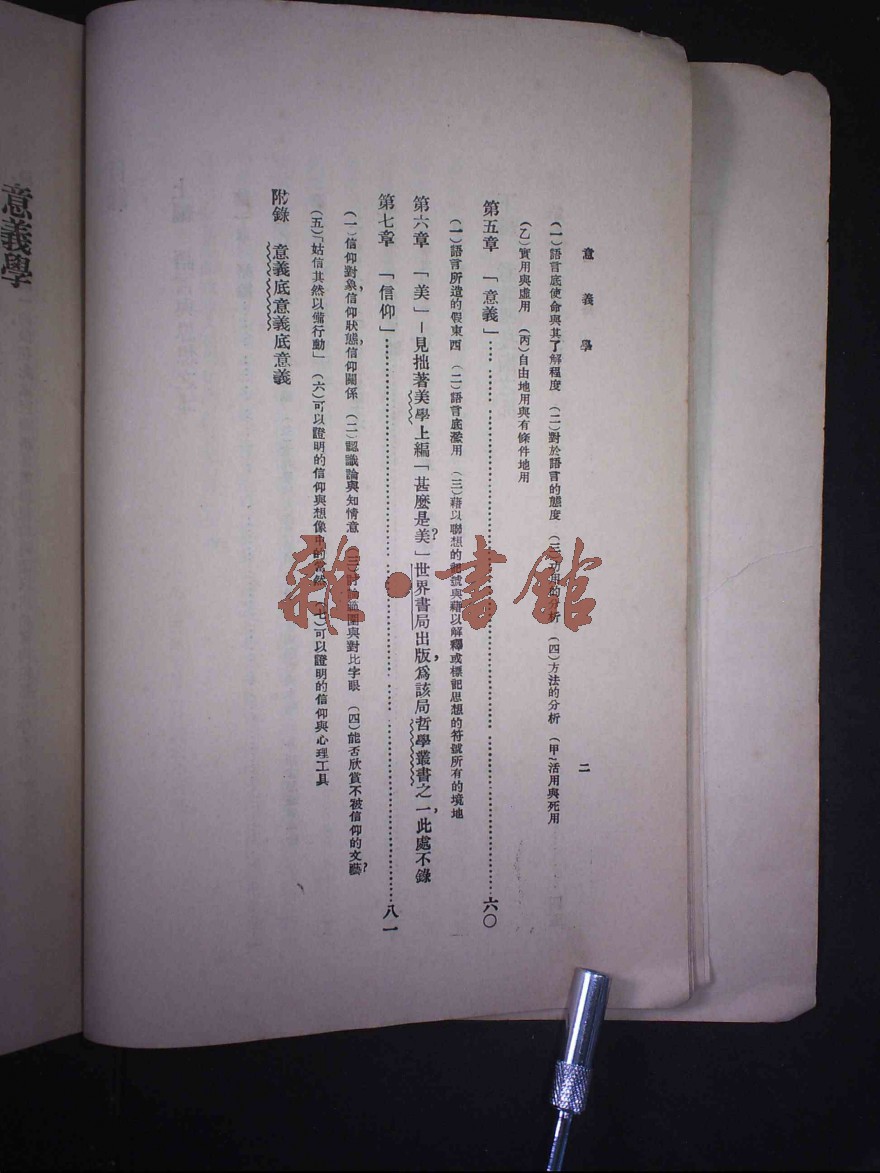 意義學
二
（一）語言底使命與其了解程度　（二）對於語言的態度　（三）功用的分析　（四）方法的分析　（甲）活用與死用
（乙）實用與虛用　（丙）自由地用與有條件地用
第五章　「意義」……六〇
（一）語言所造的假東西　（二）語言底濫用　（三）藉以聯想的記號與藉以解釋或標記思想的符號所有的境地
第六章　「美」—見拙著美學上編「甚麼是美？」世界書局出版，爲該局哲學叢書之一，此處不錄
第七章　「信仰」……八一
（一）信仰對象，信仰狀態，信仰關係　（二）認識論與知情意　（三）討論範圍與對比字眼　（四）能否欣賞不被信仰的文藝？
（五）「姑信其然以備行動」　（六）可以證明的信仰與想像中的　（七）可以證明的信仰與心理工具
附錄　意義底意義底意義
意義學
雜·書館